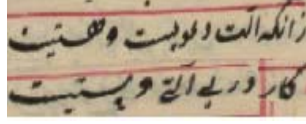 زانکه آلت دعویست و هستیست
کار در بی آلتی و پستیست